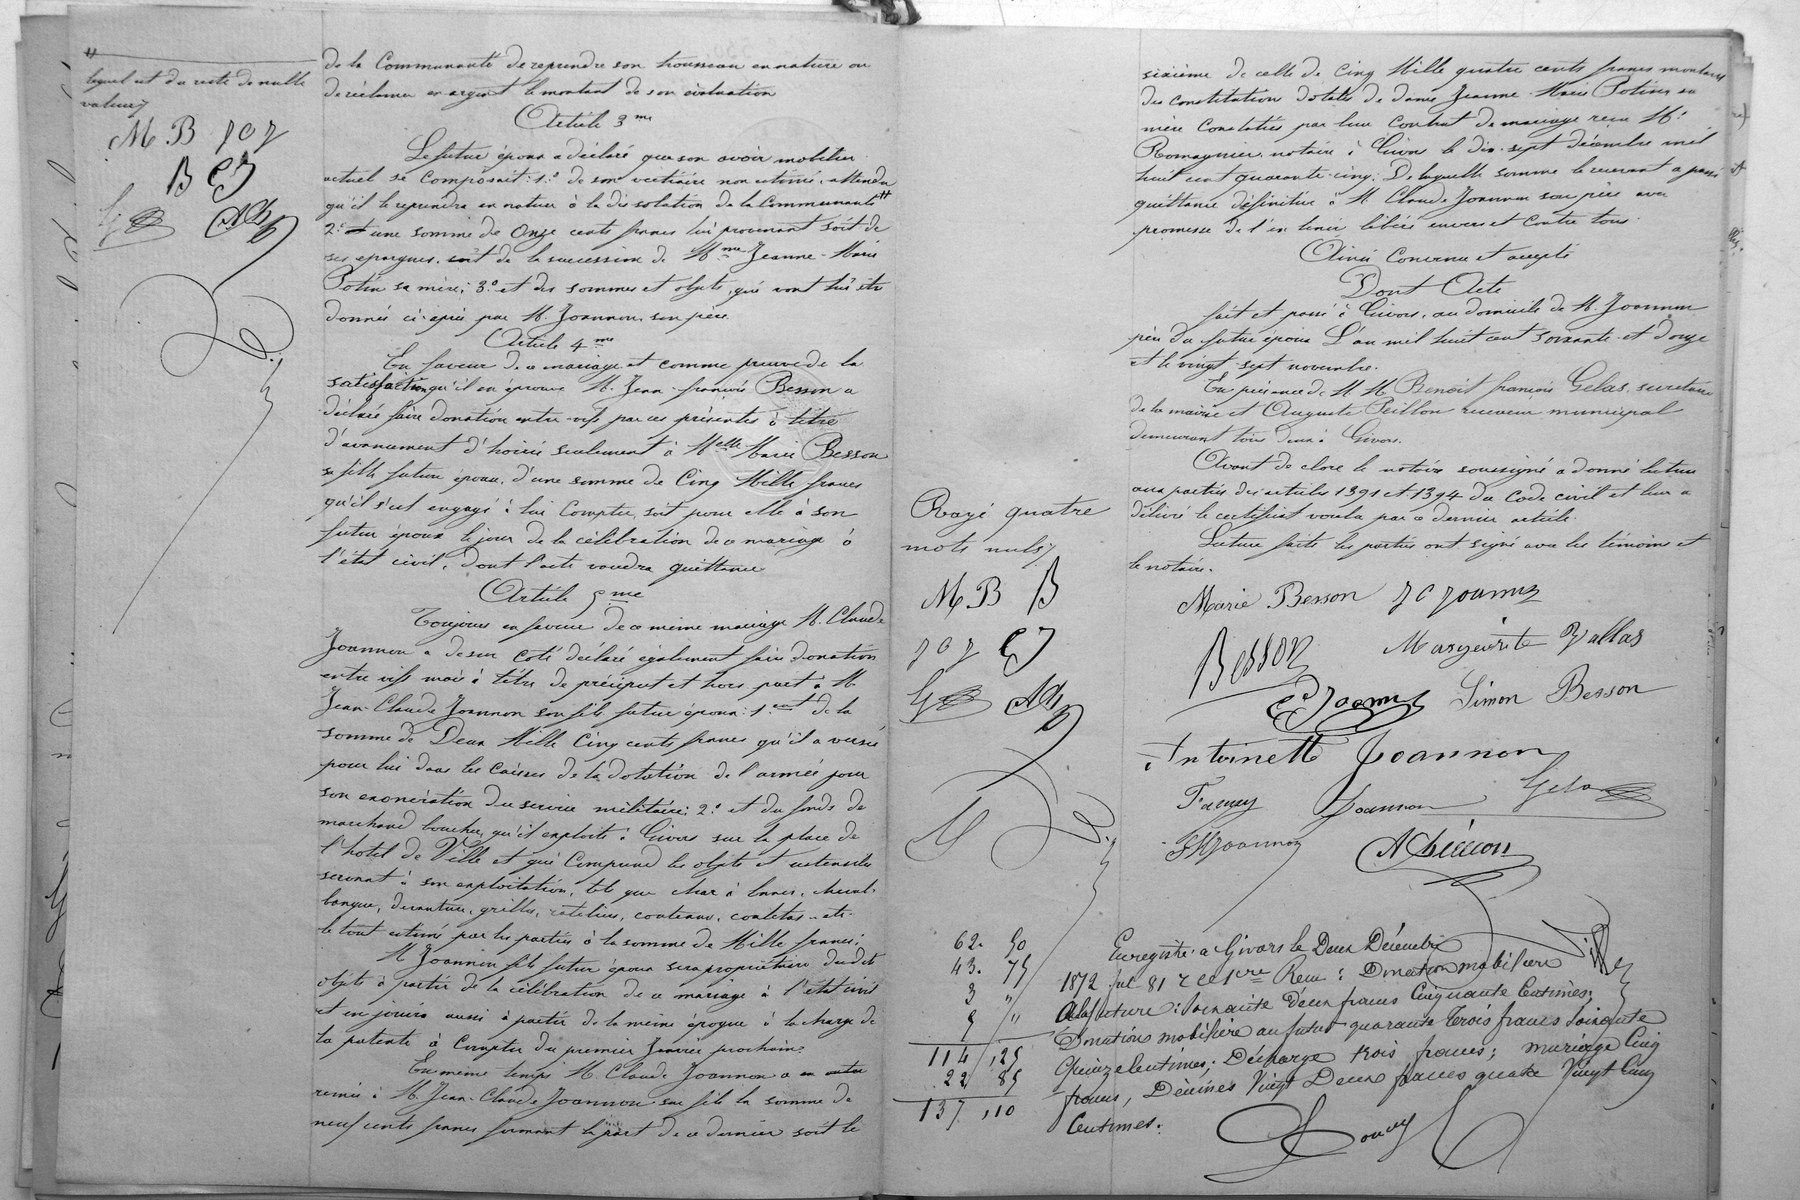 lequel est du reste de nulle
valeur
M B JCJ
B CJ
de la Communauté de reprendre son trousseau en nature ou
de réclamer en argent le montant de son évaluation
Article 3me
Le futur époux a déclaré que son avoir mobilier
actuel se composait: 1.° de son vestiaire non estimé, attendu
qu'il le reprendra en nature à la dissolution de la Communauté #
2.° une somme de Onze cents francs lui provenant soit de
ses épargnes, soit de la succession de Mme Jeanne-Marie
Potin sa mère; 3.° et des sommes et objets, qui vont lui être
donnés ci-après par M. Joannon, son père.
Article 4me
En faveur de ce mariage et comme preuve de la
satisfaction qu'il en éprouve M. Jean-françois Besson a
déclaré faire donation entre-vifs par ces présentes à titre
d'avancement d'hoirie seulement à Melle Marie Besson
sa fille future épouse, d'une somme de Cinq Mille francs
qu'il s'est engagé à lui Compter, soit pour elle à son
futur époux le jour de la célébration de ce mariage à
l'état civil, dont l'acte vaudra quittance
Article 5me
Toujours en faveur de ce même mariage M. Claude
Joannon a de son coté déclaré également faire donation
entre vifs mais à titre de préciput et hors part à M.
Jean-Claude Joannon son fils futur époux: 1.ent de la
somme de Deux Mille Cinq cents francs qu'il a versé
pour lui dans les Caisses de la dotation de l'armée pour
son exonération du service militaire; 2.° et du fonds de
marchand boucher, qu'il exploite à Givors sur la place de
l'hotel de Ville et qui Comprend les objets et ustensiles
servant à son exploitation, tels que char à bancs, cheval,
banque, devanture, grilles, rateliers, couteaux, coutelas, etc.
le tout estimé par les parties à la somme de Mille francs;
M Joannon fils futur époux sera propriétaire desdits
objets à partir de la célébration de ce mariage à l'état civil
et en jouira aussi à partir de la même époque à la charge de
la patente à Compter du premier Janvier prochain.
En même temps M. Claude Joannon a en outre
remis à M. Jean-Claude Joannon son fils la somme de
neuf cents francs formant la part de ce dernier soit le
sixième de celle de Cinq Mille quatre cents francs montant
des constitutions dotales de dame Jeanne-Marie Potin sa
mère Constatées par leur Contrat de mariage reçu Me
Romagnier, notaire à Givors le dix-sept décembre mil
huit cent quarante-cinq; De laquelle somme le suivant a passé
quittance définitive à M Claude Joannon son père avec
promesse de l'en tenir libéré envers et contre tous.
Ainsi Convenu et accepté
Dont Acte
fait et passé à Givors, au domicile de M. Joannon
père du futur époux L'an mil huit cent soixante-et-douze
et le vingt-sept novembre.
En présence de M.M. Benoit françois Gelas, secrétaire
de la mairie et Auguste Peillon receveur municipal
demeurant tous deux à Givors.
Avant de clore le notaire soussigné a donné lecture
aux parties des articles 1391 et 1394 du Code civil et leur a
délivré le certificat voulu par ce dernier article.
Lecture faite les parties ont signé avec les témoins et
le notaire.
Rayé quatre
mots nuls
M B B
JCJ CJ
Marie Besson JC Joannon
Besson Marguerite Vallas
C Joannon Simon Besson
Antoinette Joannon
Joannon Gelas
Joannon
62. 50
43. 75
3 "
5 "
114, 25
22 85
137, 10
Enregistré à Givors le Deux Décembre
1872 fol. 81 Reçu: Donation mobilière
à la future: soixante deux francs Cinquante Centimes;
Donation mobilière au futur quarante trois francs Soixante
Quinze Centimes; Décharge trois francs; mariage Cinq
francs, Décimes Vingt Deux francs quatre Vingt Cinq
Centimes.